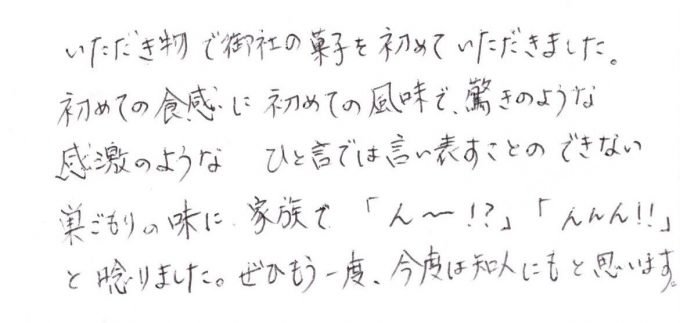 いただき物で御社の菓子を初めていただきました。
初めての食感に初めての風味で、驚きのような
感激のような　ひと言では言い表すことのできない
巣ごもりの味に家族で「ん～!?」「んんん!!」
と唸りました。ぜひもう一度、今度は知人にもと思います。